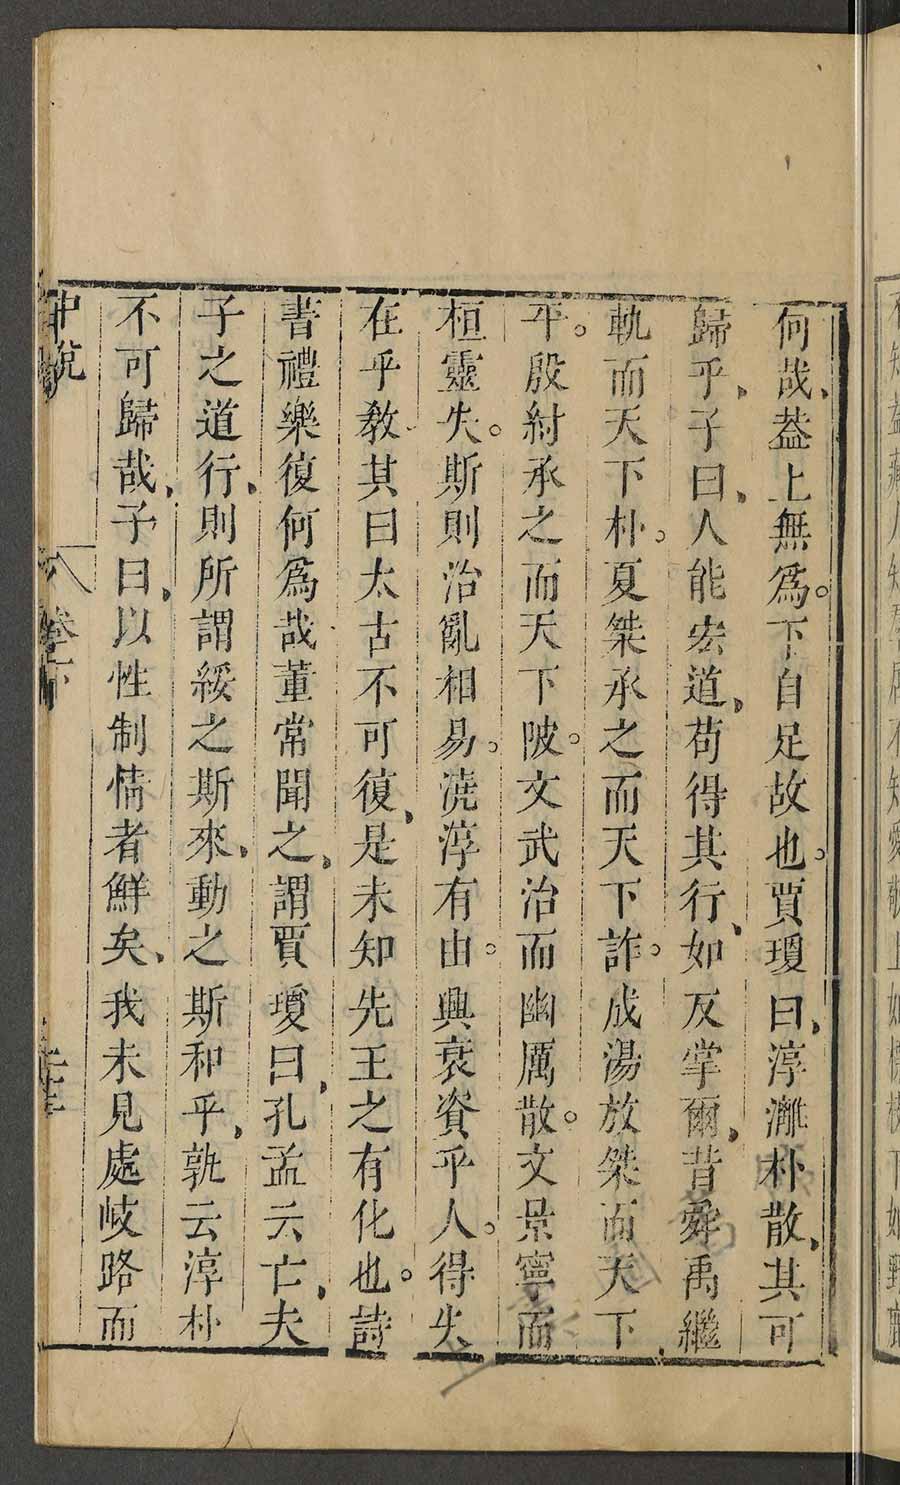 何哉蓋上無爲。下自足故也。賈瓊曰、淳灕朴散、其可
歸乎、子曰、人能宏道、苟得其行、如反掌爾、昔舜禹繼
軌而天下朴。夏桀承之而天下詐。成湯放桀而天下
平。殷紂承之而天下陂。文武治而幽厲散。文景寧而
桓靈失。斯則治亂相易。澆淳有由。興衰資乎人。得失
在乎敎其曰太古不可復、是未知先王之有化也。詩
書禮樂復何爲哉董常聞之、謂賈瓊曰、孔孟云亡、夫
子之道行、則所謂綏之斯來、動之斯和乎、孰云淳朴
不可歸哉、子曰、以性制情者鮮矣、我未見處岐路而
中說 卷下